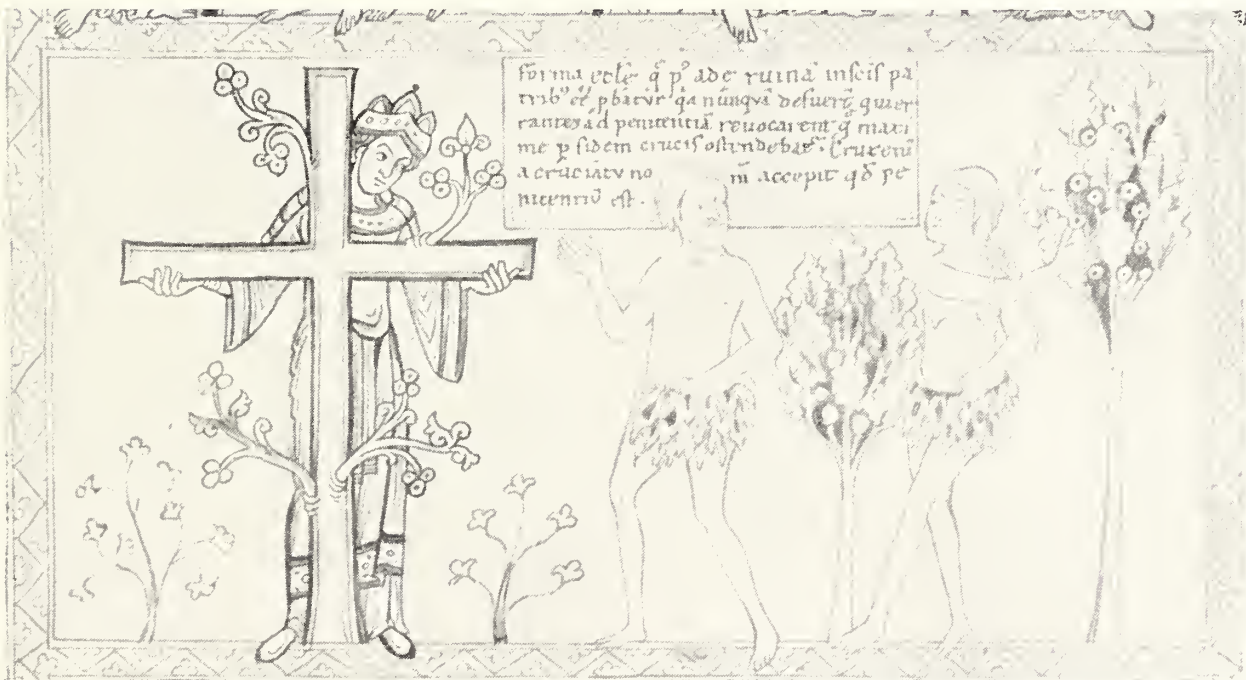 forma eccl̄e q̄ pᵒ ade ruinā in scīs pa
tribꝰ eē p̄batvr qa nunqvā defuer̄t qui er
rantes ad penitentiā revocarent q̄ maxi
me p fidem crucis ostendebat᷑. Crux enī
a cruciatv no m̄ accepit qd̄ pe
nitentiū est.